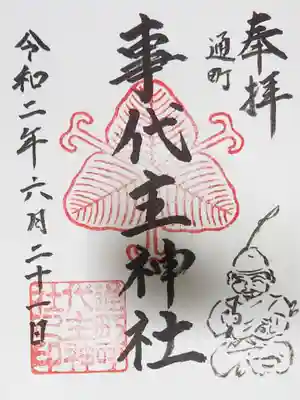 奉拝
通町
事代主神社
令和二年六月二十一日